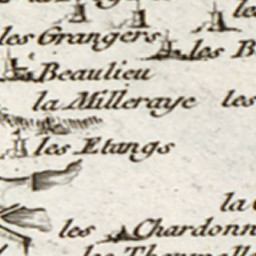 les
les Grangers
les B
Beaulieu
la Milleraye les
les Etangs
la
les Chardonn
les